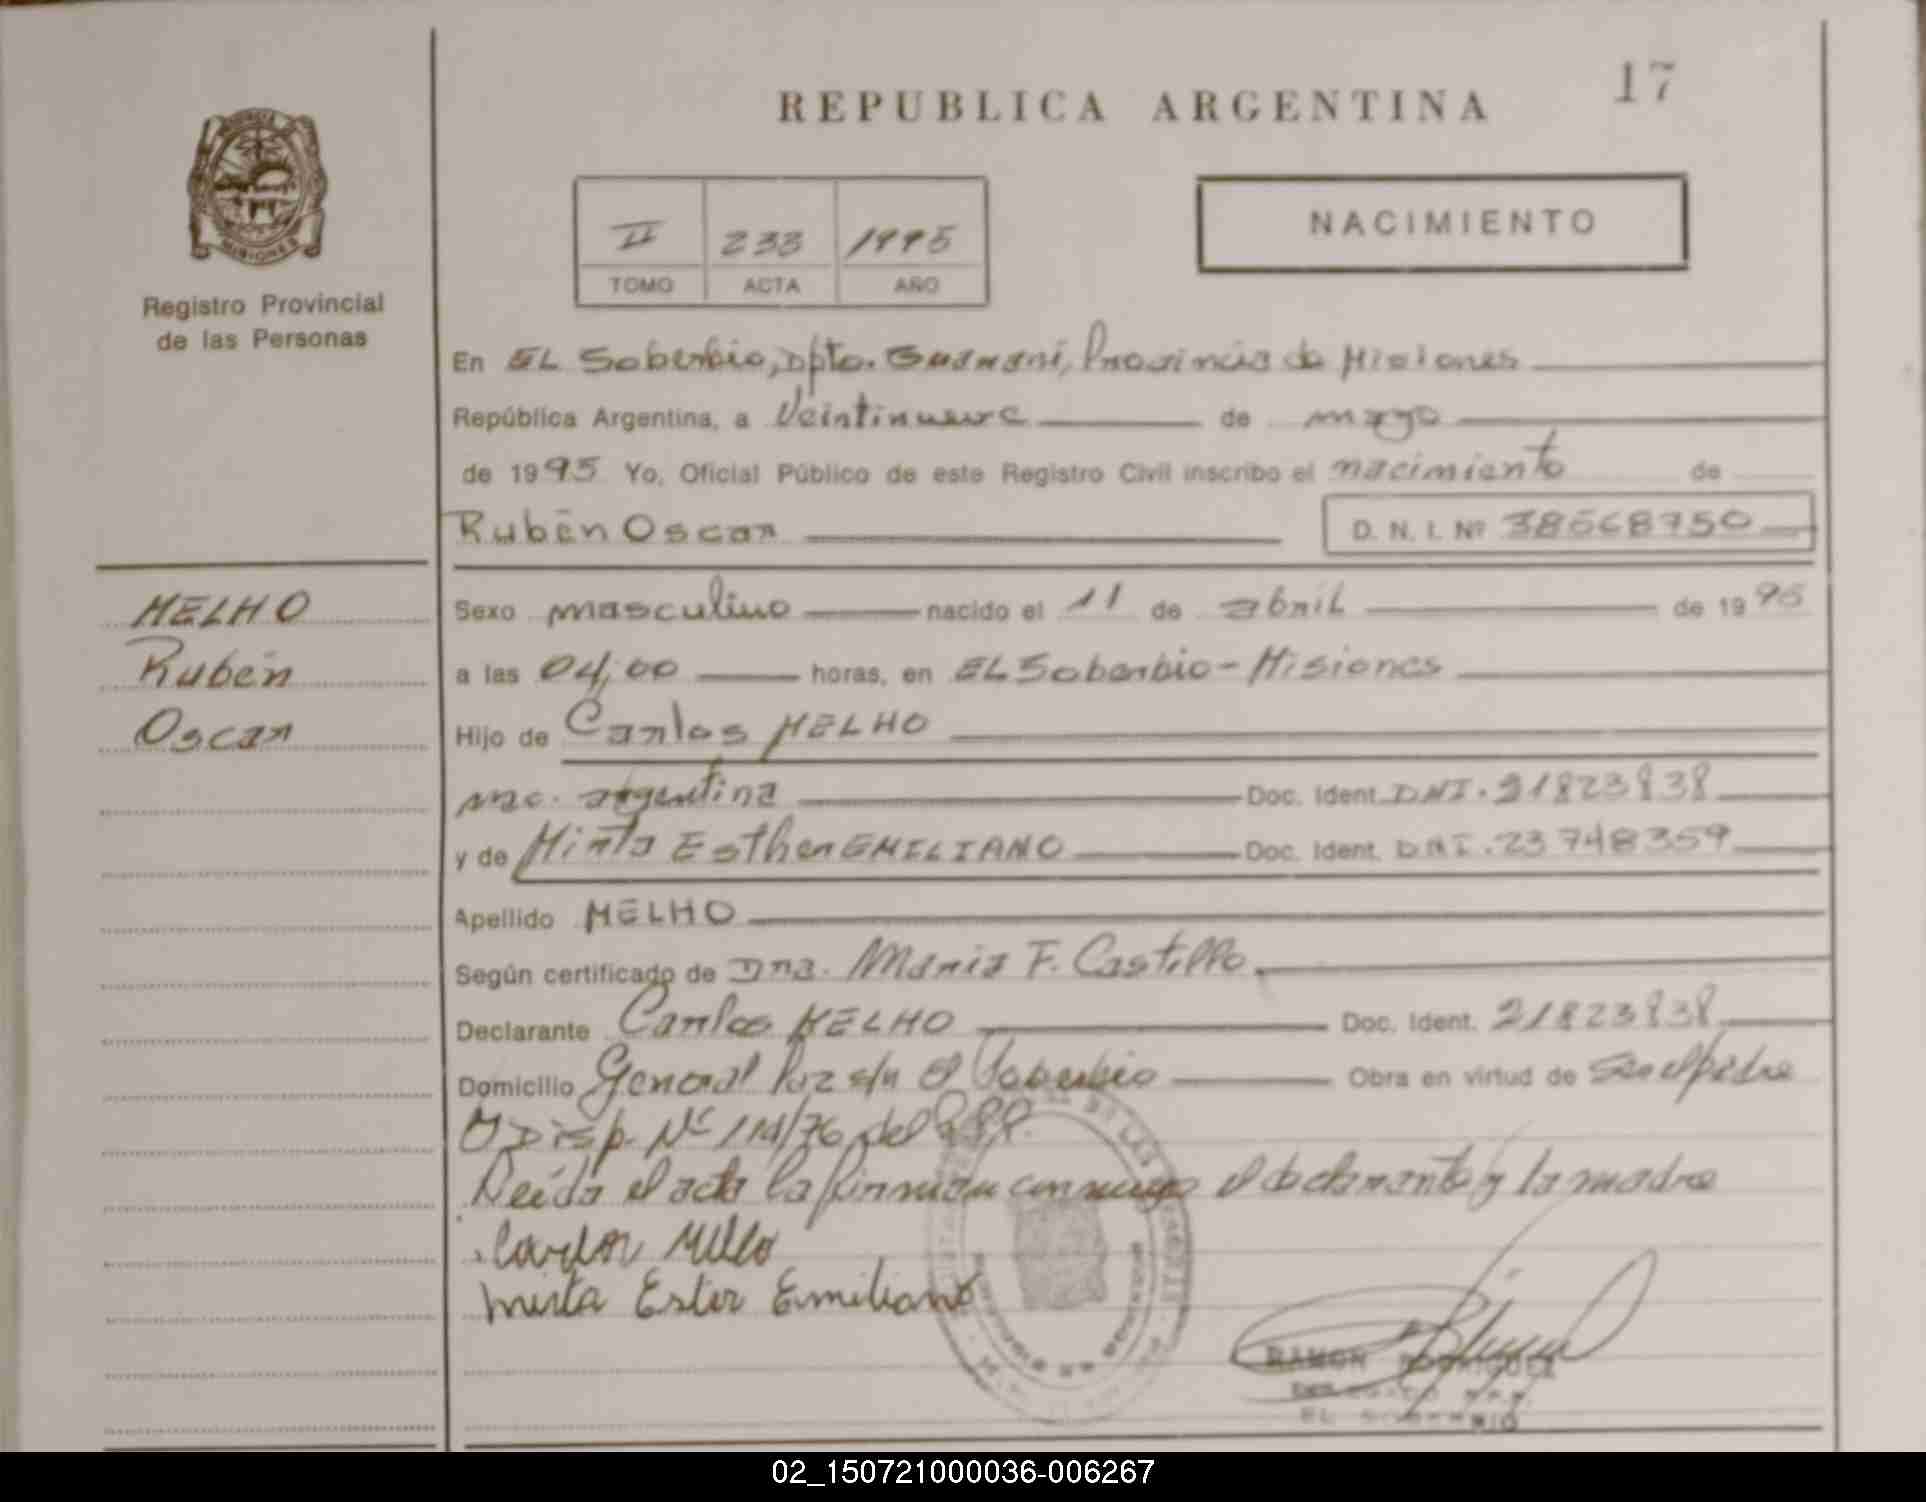 REPUBLICA ARGENTINA
17
MISIONES
Registro Provincial
de las Personas
II 233 1995
TOMO ACTA AÑO
NACIMIENTO
En EL Soberbio, Dpto. Guaraní, Provincia de Misiones
República Argentina, a Veintinueve de mayo
de 1995 Yo, Oficial Público de este Registro Civil inscribo el nacimiento de
Rubén Oscar D. N. I. Nº 38568750
MELHO
Rubén
Oscar
Sexo masculino nacido el 11 de abril de 1995
a las 04,00 horas, en EL Soberbio - Misiones
Hijo de Carlos MELHO
nac. argentina Doc. Ident. DNI. 21823838
y de Mirta Esther EMILIANO Doc. Ident. DNI. 23748359
Apellido MELHO
Según certificado de Dra. Maria F. Castillo
Declarante Carlos MELHO Doc. Ident. 21823838
Domicilio General Paz s/n El Soberbio Obra en virtud de ser el padre
Disp. Nº 114/76 del
Leída el acta la firman conmigo el declarante y la madre
Carlos Mello
Mirta Ester Emiliano
RAMON RODRIGUEZ
EL SOBERBIO
02_150721000036-006267